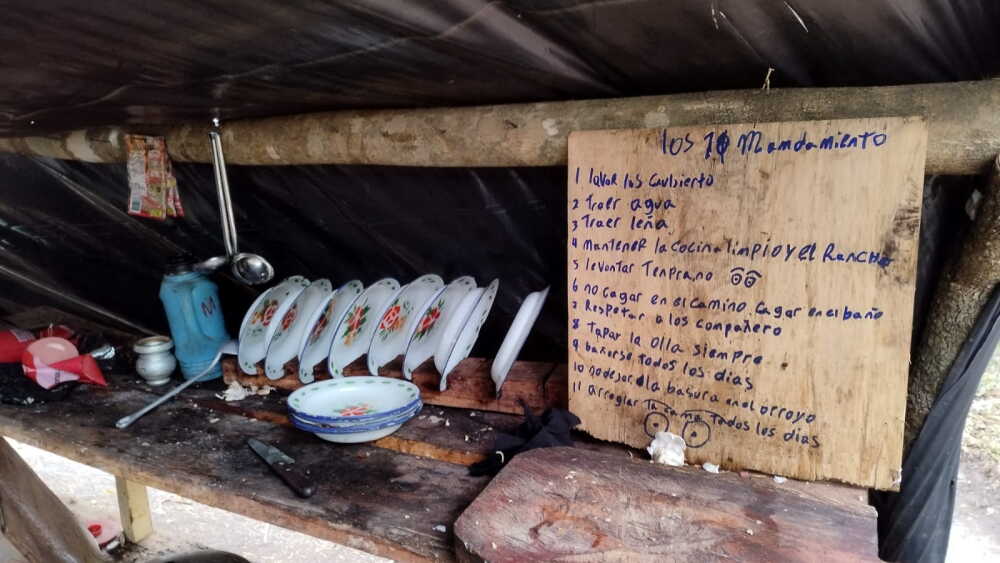 los 10 Mamdamiento
1 lavar los Cubierto
2 Traer agua
3 Traer leña
4 mantener la cocina limpio y el Rancho
5 levontar Temprano
6 no cagar en el camino. cagar en el baño
7 Respetar a los compañero
8 Tapar la olla siempre
9 bañarse todos los dias
10 no dejar la basura en el arroyo
11 arreglar la cama Todos los dias